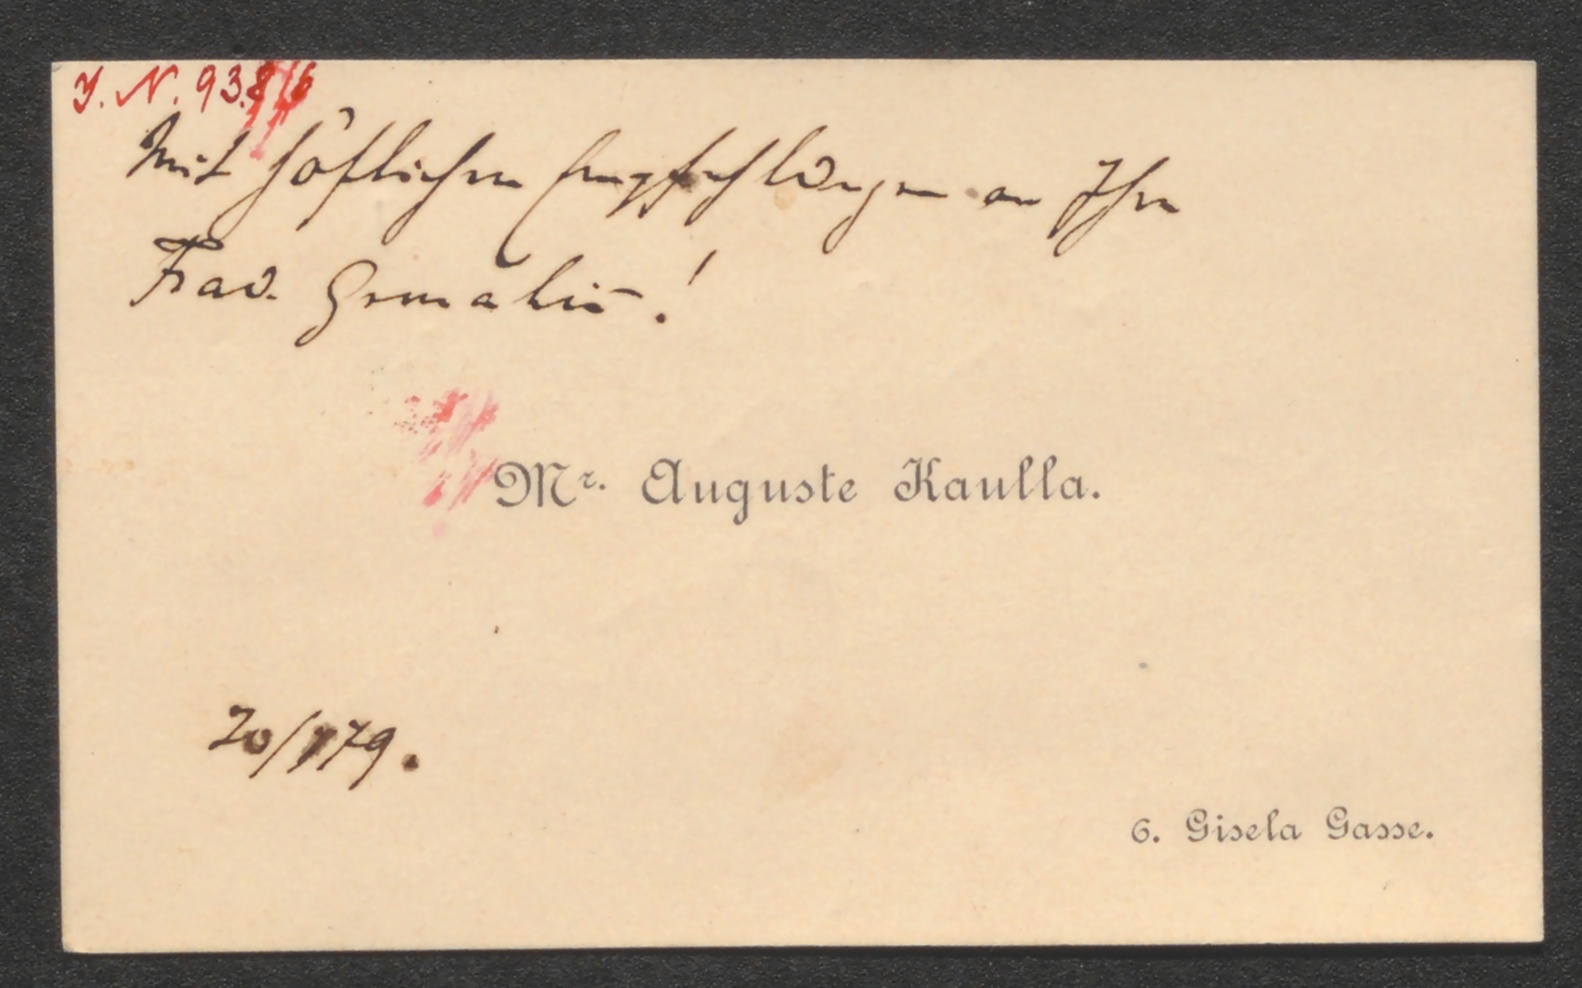 I. N. 93.816
Mit höflichen Empfehlungen an Ihre
Frau Gemahlin!
Mr. Auguste Kaulla.
20/1 79.
6. Gisela Gasse.